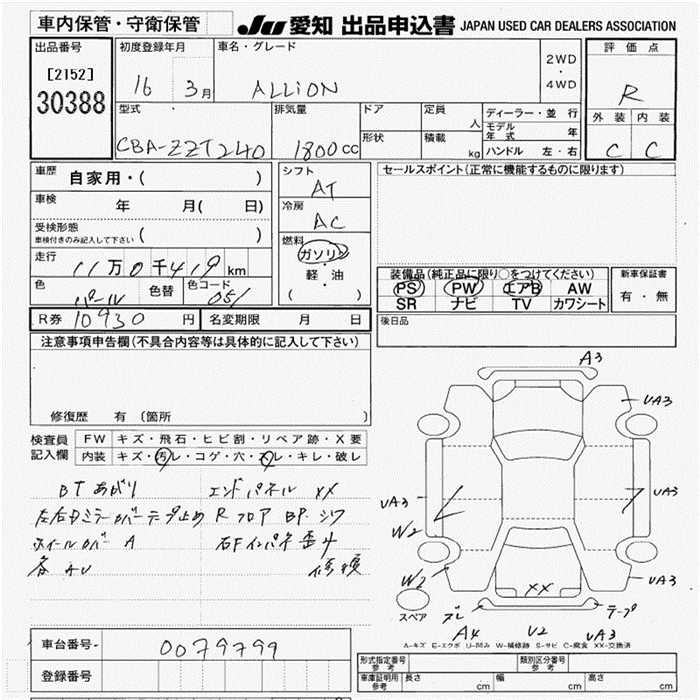 車内保管・守衛保管
JU 愛知 出品申込書 JAPAN USED CAR DEALERS ASSOCIATION
出品番号
[2152]
30388
初度登録年月
16 3月
車名・グレード
ALLION
2WD
・
4WD
評価点
R
外装 内装
C C
型式
CBA-ZZT240
排気量
1800cc
ドア
形状
定員
人
積載
kg
ディーラー・並行
モデル年式 年
ハンドル 左・右
車歴
自家用・( )
車検
年 月( 日)
受検形態
車検付きのみ記入して下さい ( )
走行
11万0千419km
色
パール
色替
色コード
051
シフト
AT
冷房
AC
燃料
ガソリン
・
軽・油
( )
セールスポイント(正常に機能するものに限ります)
装備品(純正品に限り○をつけてください)
PS PW エアB AW
SR ナビ TV カワシート
新車保証書
有・無
R券 10930円
名変期限 月 日
後日品
注意事項申告欄(不具合内容等は具体的に記入して下さい)
修復歴 有 (箇所 )
検査員記入欄
FW キズ・飛石・ヒビ割・リペア跡・X要
内装 キズ・汚レ・コゲ・穴・スレ・キレ・破レ
BTあがり エンドパネル XX
左右Dミラーカバーテープ止め Rフロア BP シワ
ホイールカバー A 右Fインパネ歪み
各AU 修復
A3
UA3
UA3
UA3
W2
W2
XX
UA3
スペア
ズレ
テープ
A4 U2 UA3
A-キズ E-エクボ U-凹み W-補修跡 S-サビ C-腐食 XX-交換済
車台番号
0079799
登録番号
形式指定番号
参考
類別区分番号
参考
車庫証明用
参考
長さ cm
幅 cm
高さ cm